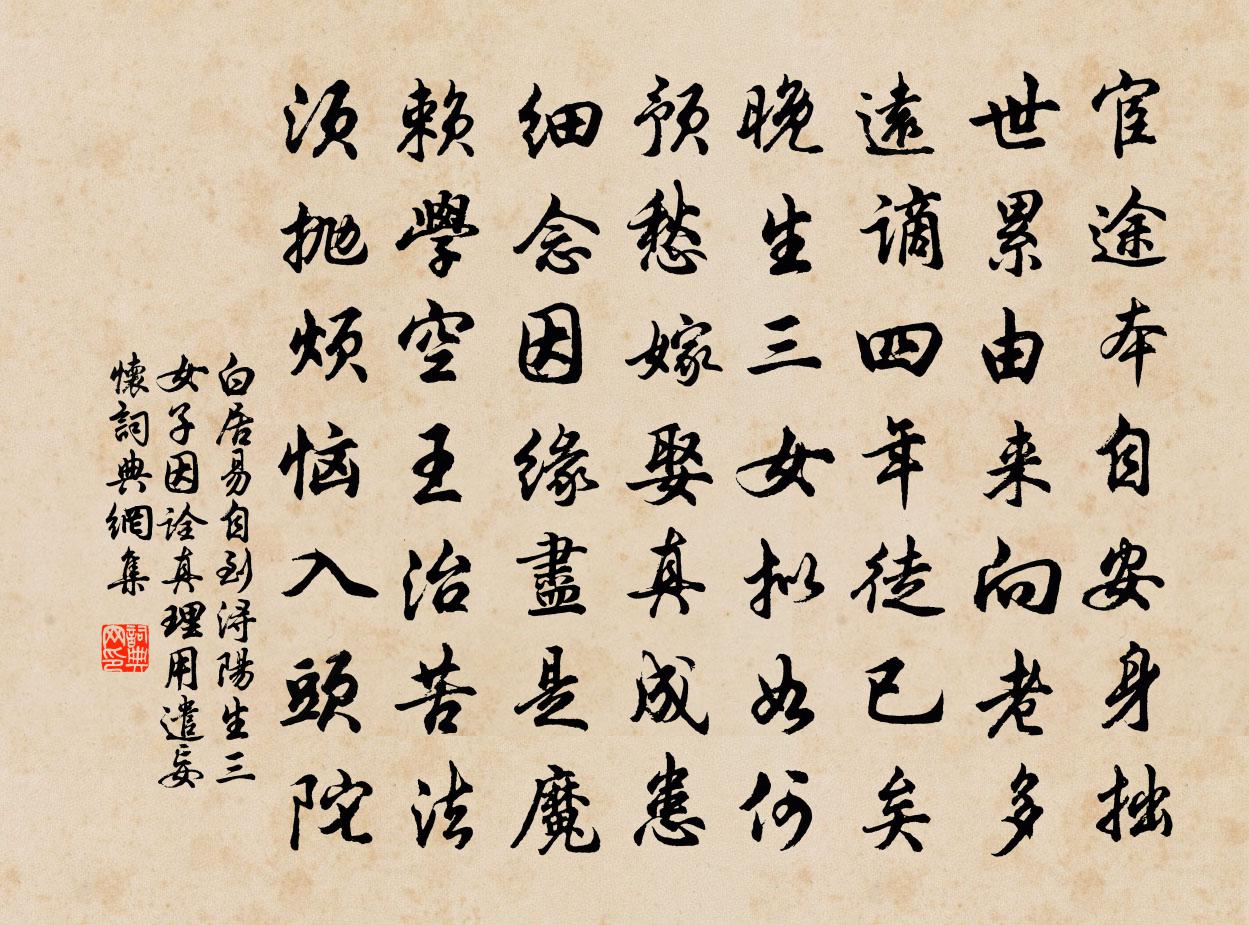 宦途本自安身拙
世累由来向老多
遠謫四年徒已矣
晚生三女拟如何
预愁嫁娶真成患
细念因缘盡是魔
赖學空王治苦法
须抛烦恼入頭陀
白居易自到浔陽生三
女子因诠真理用遣妄
懷詞典網集
詞典
网印